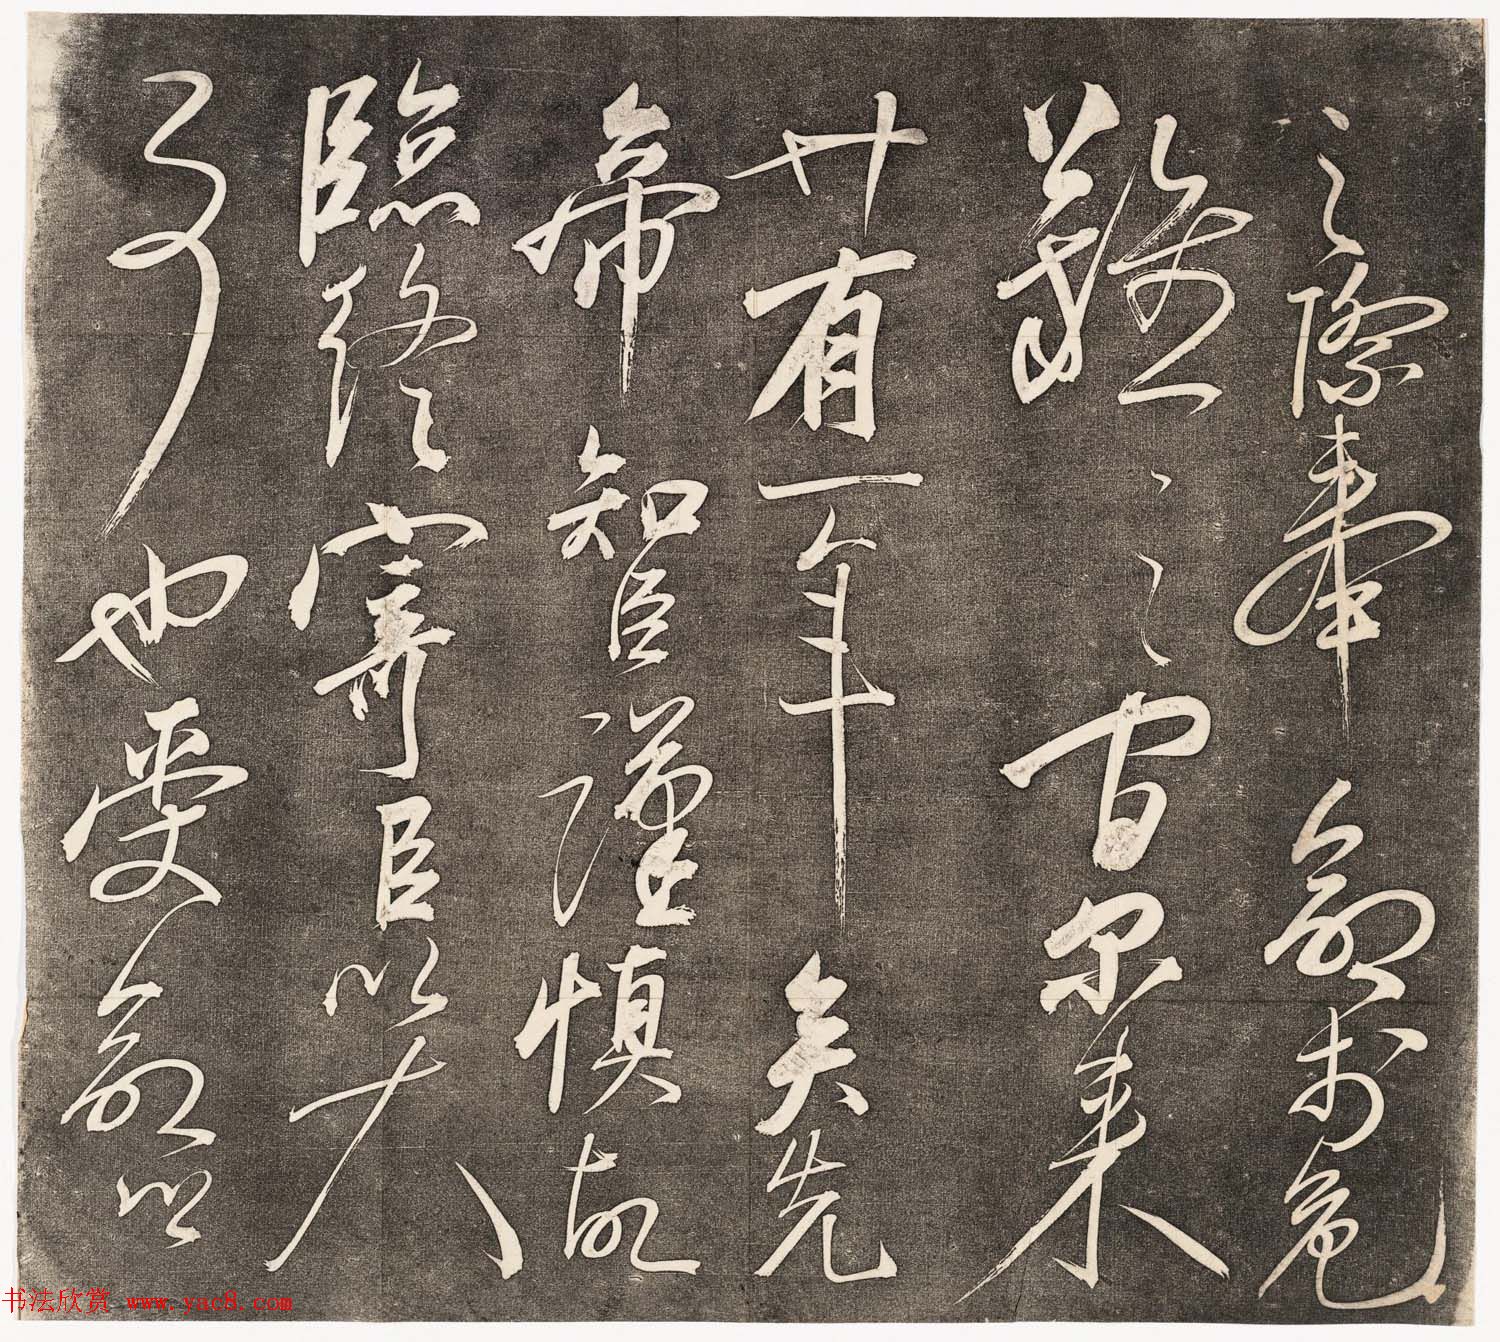 之際奉命於危
難之間爾來
廿有一年矣先
帝知臣謹慎故
臨終寄臣以大
事也受命以
书法欣赏 www.yac8.com